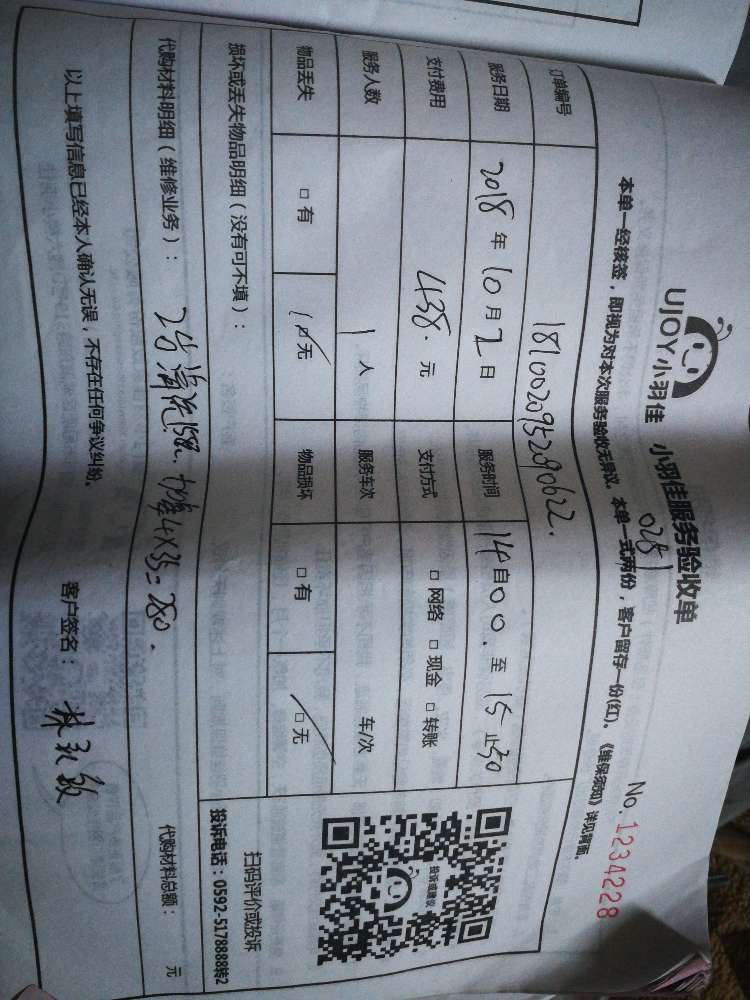 UJOY小羽佳 小羽佳服务验收单
0281
No. 1234228
本单一经核签，即视为对本次服务验收无异议。本单一式两份，客户留存一份(红)。《维保须知》详见背面。
订单编号 181002095290622.
服务日期 2018 年 10 月 2 日 服务时间 14自00. 至 15止30
支付费用 438. 元 支付方式 □ 网络 □ 现金 □ 转账
服务人数 1 人 服务车次 车/次
物品丢失 □ 有 □ 无 物品损坏 □ 有 □ 无
损坏或丢失物品明细（没有可不填）：
代购材料明细（维修业务）： 2台清洗158. 4X35= 280.
代购材料总额： 元
以上填写信息已经本人确认无误，不存在任何争议纠纷。
客户签名：
投诉或建议
扫码评价或投诉
投诉电话：0592-5178888转2